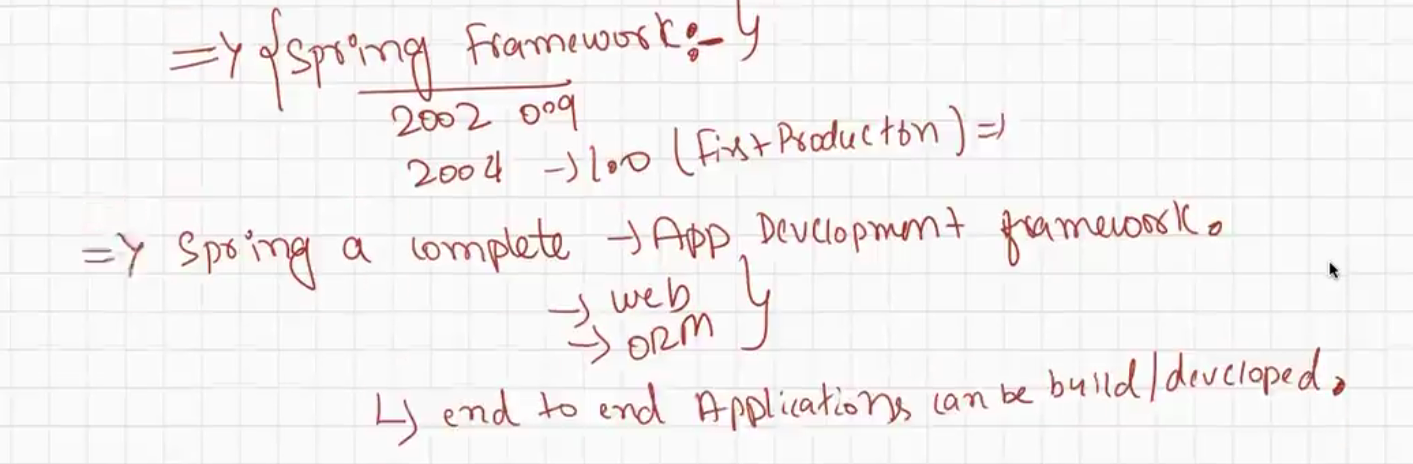 => {Spring Framework:- }
2002 0.9
2004 -> 1.0.0 (First Production) =>
=> Spring a complete -> App Development framework.
-> web }
-> ORM
↳ end to end Applications can be build/developed.